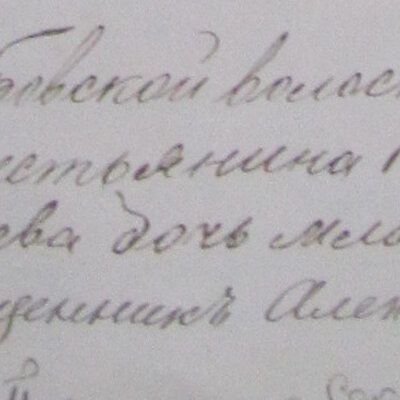 бовской волос
истьянина
ева дочь мла
щенникъ Алек